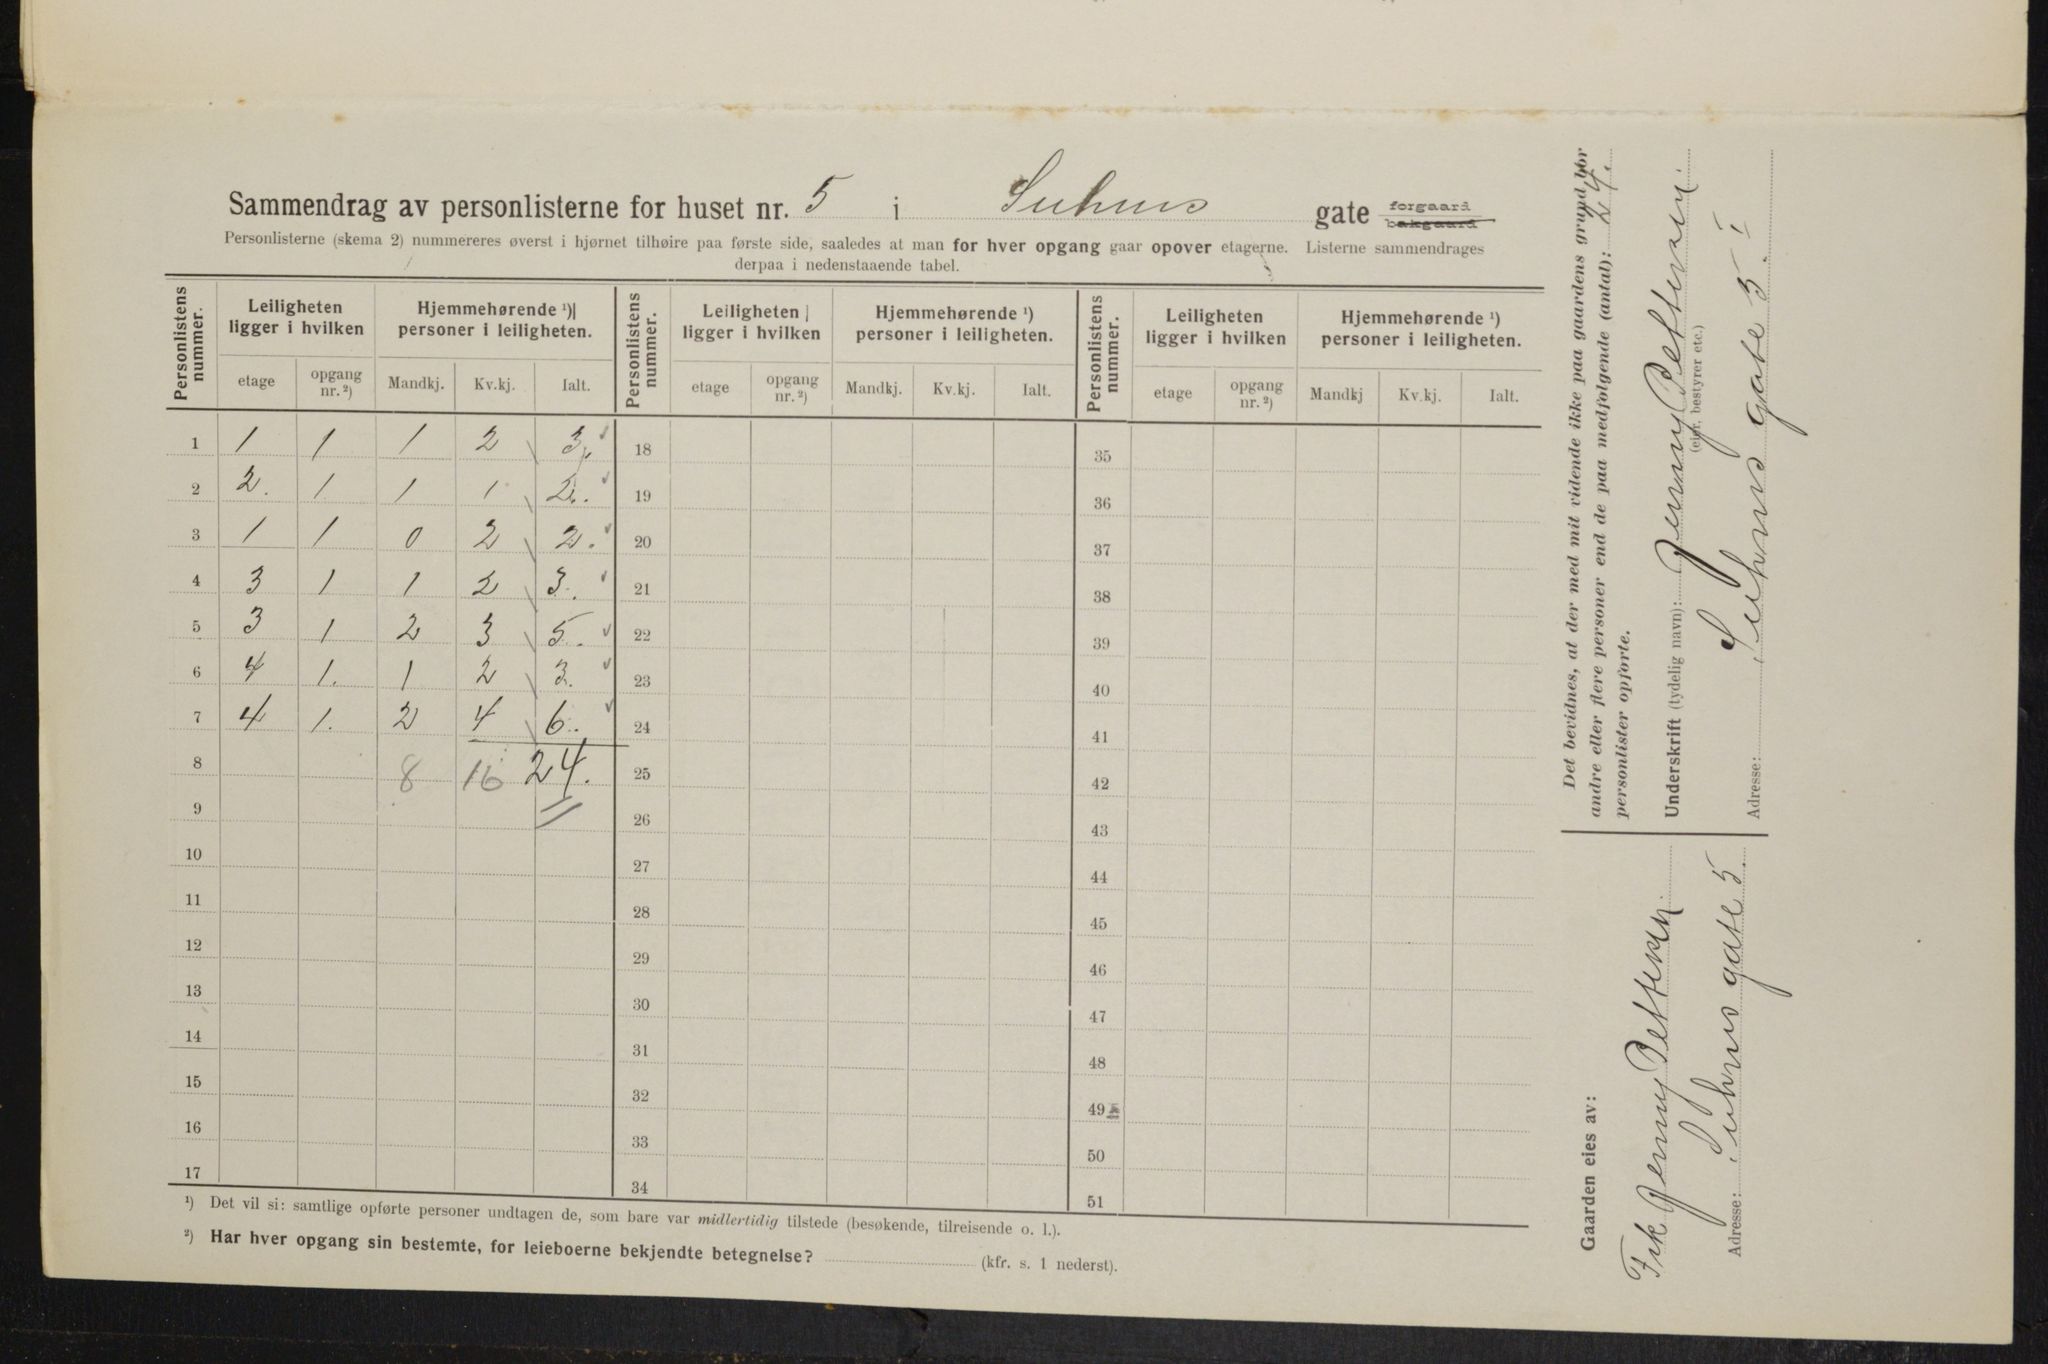 Sammendrag av personlisterne for huset nr. 5 i Suhms gate forgaard
bakgaard
Personlisterne (skema 2) nummereres øverst i hjørnet tilhøire paa første side, saaledes at man for hver opgang gaar opover etagerne. Listerne sammendrages
derpaa i nedenstaaende tabel.
Personlistens nummer. Leiligheten ligger i hvilken Hjemmehørende ¹) personer i leiligheten. Personlistens nummer. Leiligheten ligger i hvilken Hjemmehørende ¹) personer i leiligheten. Personlistens nummer. Leiligheten ligger i hvilken Hjemmehørende ¹) personer i leiligheten.
etage opgang nr. ²) Mandkj. Kv.kj. Ialt. etage opgang nr. ²) Mandkj. Kv.kj. Ialt. etage opgang nr. ²) Mandkj Kv.kj. Ialt.
1 1 1 1 2 3. 18 35
2 2. 1 1 1 2. 19 36
3 1 1 0 2 2. 20 37
4 3 1 1 2 3. 21 38
5 3 1 2 3 5. 22 39
6 4 1. 1 2 3. 23 40
7 4 1. 2 4 6. 24 41
8 8 16 24. 25 42
9 26 43
10 27 44
11 28 45
12 29 46
13 30 47
14 31 48
15 32 49
16 33 50
17 34 51
¹) Det vil si: samtlige opførte personer undtagen de, som bare var midlertidig tilstede (besøkende, tilreisende o. l.).
²) Har hver opgang sin bestemte, for leieboerne bekjendte betegnelse? (kfr. s. 1 nederst).
Det bevidnes, at der med mit vidende ikke paa gaardens grund bor
andre eller flere personer end de paa medfølgende (antal): 24.
personlister opførte.
Underskrift (tydelig navn): Jenny Pettersen.
(eier, bestyrer etc.)
Adresse: Suhms gate 5. I
Gaarden eies av:
Frk Jenny Pettersen.
Adresse: Suhms gate 5.